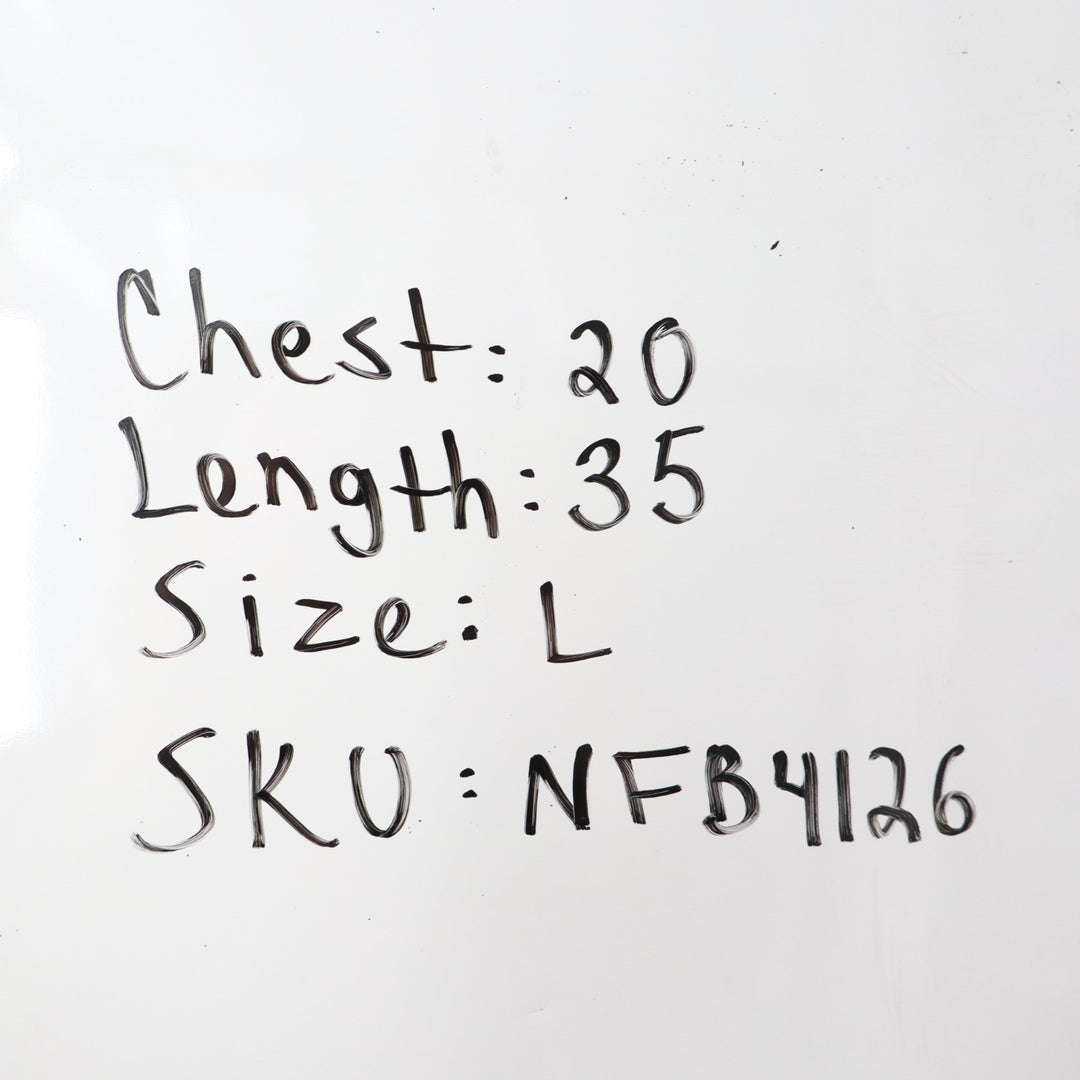 Chest: 20
Length: 35
Size: L
SKU: NFB4126